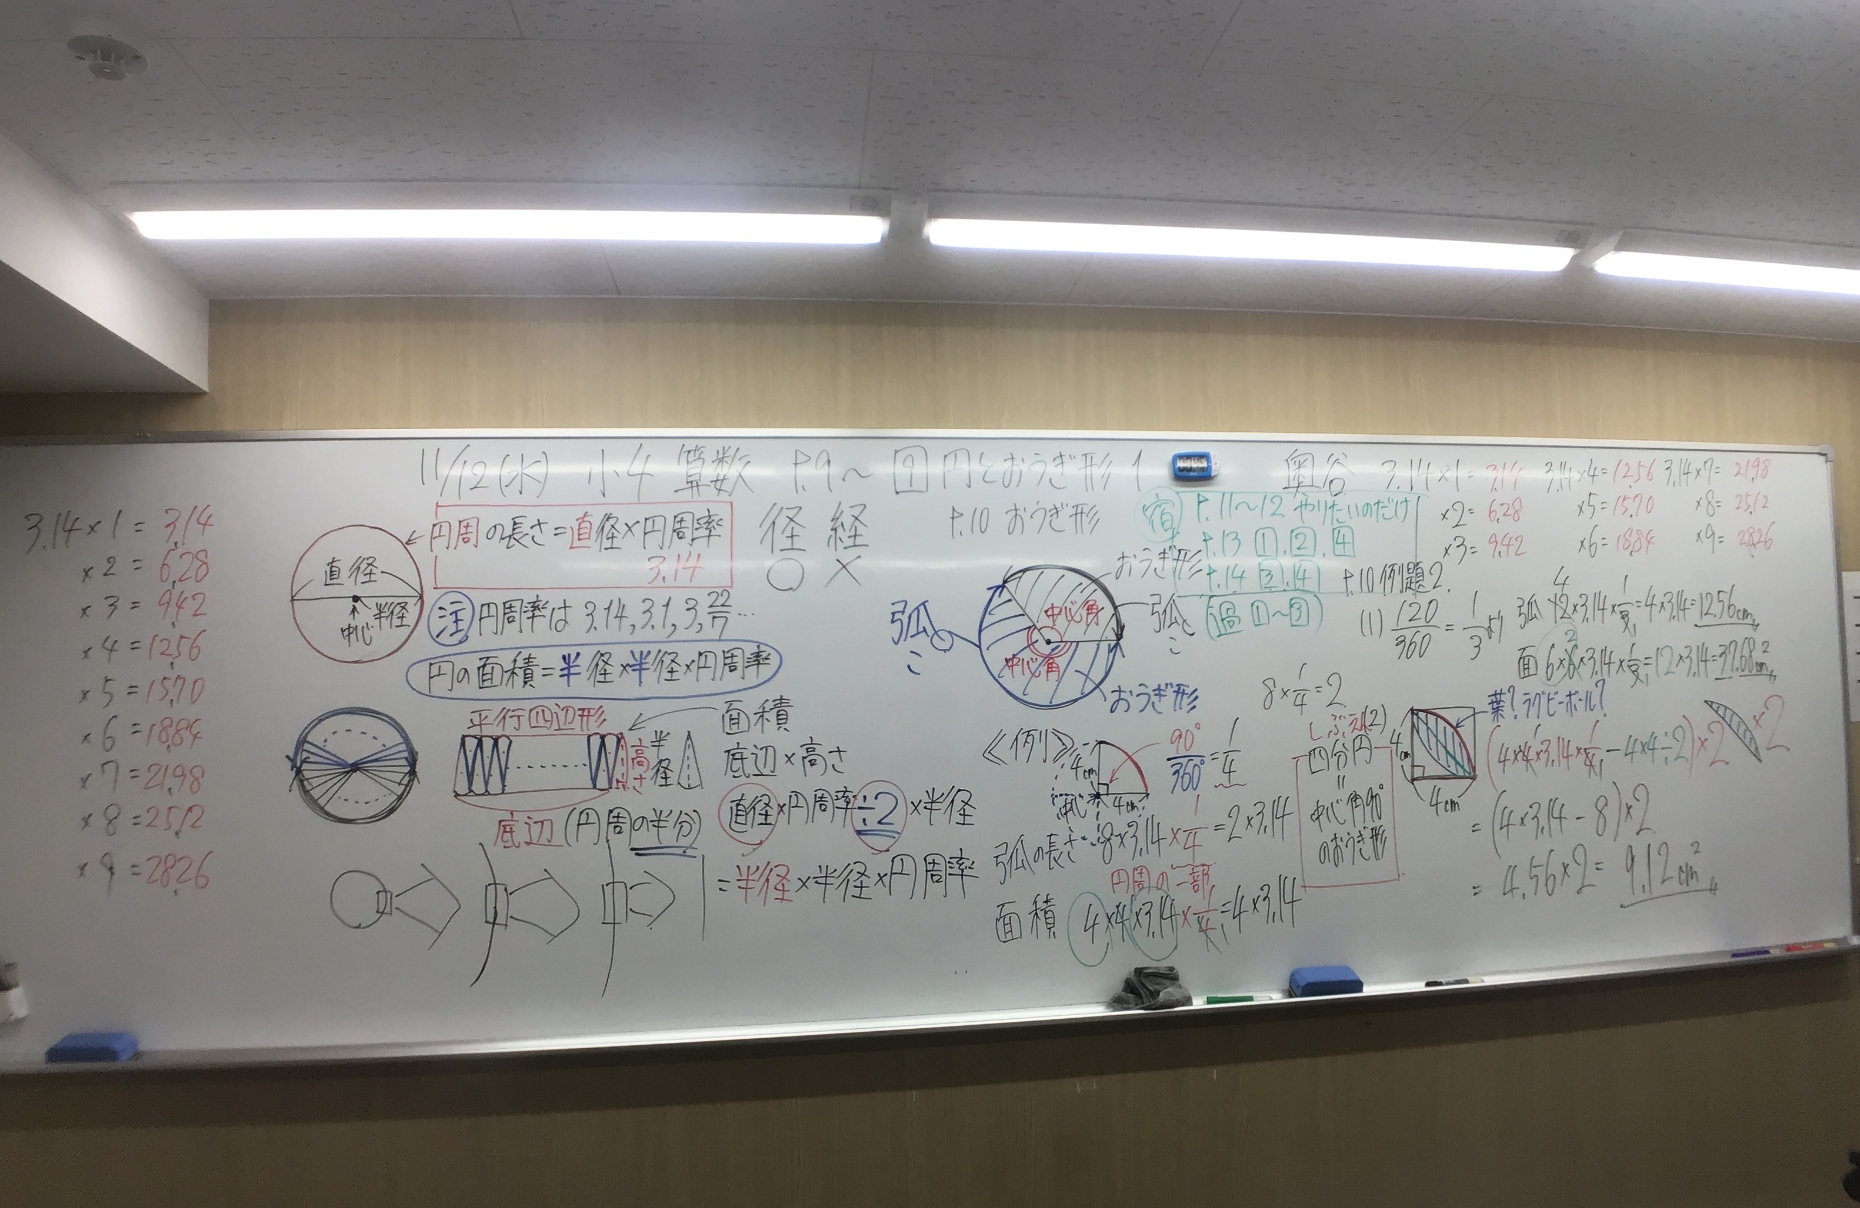 11/12(水) 小4 算数 P.9〜 9 円とおうぎ形 1
奥谷
3.14×1=3.14
×2=6.28
×3=9.42
×4=12.56
×5=15.70
×6=18.84
×7=21.98
×8=25.12
×9=28.26
直径
半径
中心
円周の長さ=直径×円周率
3.14
径 経
○ ×
注 円周率は 3.14, 3.1, 3, 22/7 …
円の面積=半径×半径×円周率
平行四辺形
高さ
半径
底辺(円周の半分)
面積
底辺×高さ
直径×円周率÷2×半径
=半径×半径×円周率
P.10 おうぎ形
おうぎ形
中心角
弧
こ
弧
こ
中心角
おうぎ形
宿 P.11〜12 やりたいのだけ
P.13 1, 2, 4
P.14 3, 4
(過 1〜3)
《例》
4cm
中心
4cm
90°/360°=1/4
8×1/4=2
弧の長さ 8×3.14×1/4=2×3.14
円周の一部
面積 4×4×3.14×1/4=4×3.14
しぶえん
四分円
=
中心角90°
のおうぎ形
3.14×1=3.14 3.14×4=12.56 3.14×7=21.98
×2=6.28 ×5=15.70 ×8=25.12
×3=9.42 ×6=18.84 ×9=28.26
P.10 例題2
(1) 120/360=1/3より 弧 12×3.14×1/3=4×3.14=12.56cm
面 6×6×3.14×1/3=12×3.14=37.68cm²
(2)
4cm
4cm
葉?ラグビーボール?
(4×4×3.14×1/4−4×4÷2)×2
×2
=(4×3.14−8)×2
=4.56×2=9.12cm²